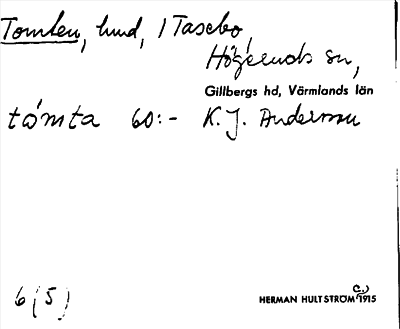 Tomten, hmd, 1 Tasebo,
Högeruds sn,
Gillbergs hd, Värmlands län
tómta 60:- K. J. Andersson
6 (5)
HERMAN HULTSTRÖM (c.) 1915